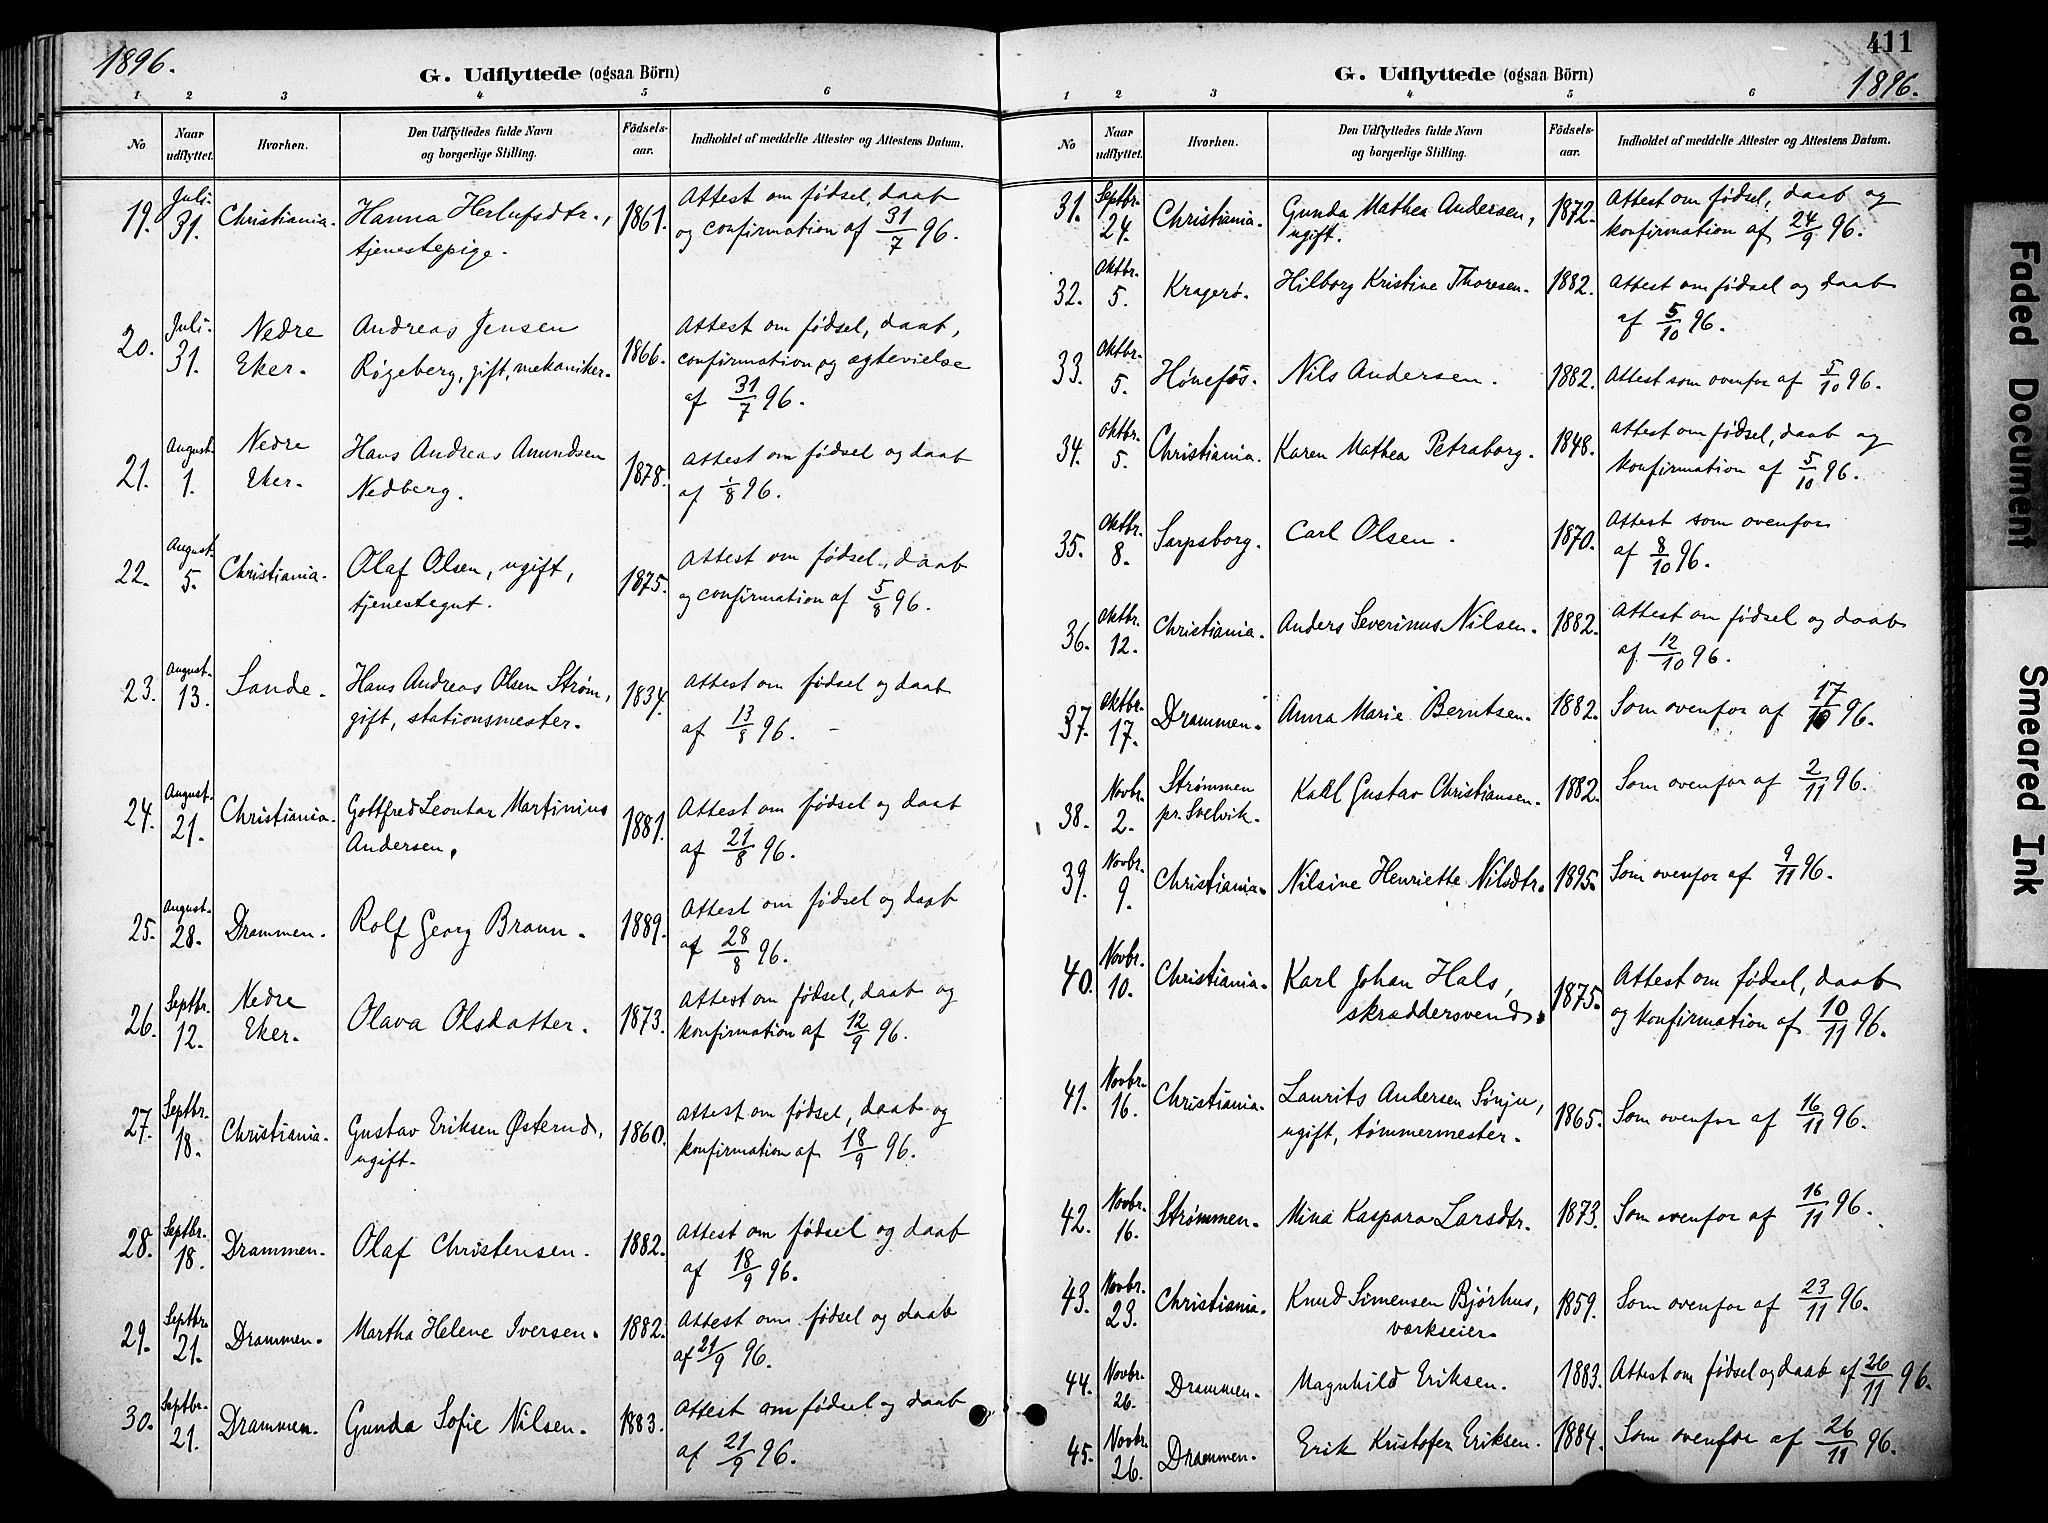 1896.
G. Udflyttede (ogsaa Börn)
1 2 3 4 5 6
No
Naar udflyttet.
Hvorhen.
Den Udflyttedes fulde Navn og borgerlige Stilling.
Fødsels-aar.
Indholdet af meddelte Attester og Attestens Datum.
19. Juli 31. Christiania. Hanna Herlufsdtr., tjenestepige. 1861. Attest om fødsel, daab og confirmation af 31/7 96.
20. Juli 31. Nedre Eker. Andreas Jensen Røgeberg, gift, mekaniker. 1866. Attest om fødsel, daab, confirmation og ægtevielse af 31/7 96.
21. August 1. Nedre Eker. Hans Andreas Amundsen Nedberg. 1878. Attest om fødsel og daab af 1/8 96.
22. August 5. Christiania. Olaf Olsen, ugift, tjenestegut. 1875. Attest om fødsel, daab og confirmation af 5/8 96.
23. August 13. Sande. Hans Andreas Olsen Strøm, gift, stationsmester. 1834. Attest om fødsel og daab af 13/8 96. –
24. August. 21. Christiania. Gottfred Leonhar Martinius Andersen. 1881. Attest om fødsel og daab af 21/8 96.
25. August. 28. Drammen. Rolf Georg Braun. 1889. Attest om fødsel og daab af 28/8 96.
26. Septbr. 12. Nedre Eker. Olava Olsdatter. 1873. Attest om fødsel, daab og konfirmation af 12/9 96.
27. Septbr. 18. Christiania. Gustav Eriksen Østerud, ugift. 1860. Attest om fødsel, daab og konfirmation af 18/9 96.
28. Septbr. 18. Drammen. Olaf Christensen. 1882. Attest om fødsel og daab af 18/9 96.
29. Septbr 21. Drammen. Martha Helene Iversen. 1882. Attest om fødsel og daab af 21/9 96.
30. Septbr. 21. Drammen. Gunda Sofie Nilsen. 1883. Attest om fødsel og daab af 21/9 96.
411
G. Udflyttede (ogsaa Börn)
1896.
1 2 3 4 5 6
No
Naar udflyttet.
Hvorhen.
Den Udflyttedes fulde Navn og borgerlige Stilling.
Fødsels-aar.
Indholdet af meddelte Attester og Attestens Datum.
31. Septbr. 24. Christiania. Gunda Mathea Andersen, ugift. 1872. Attest om fødsel, daab og konfirmation af 24/9 96.
32. Oktbr. 5. Kragerø. Hilborg Kristine Thoresen. 1882. Attest om fødsel og daab af 5/10 96.
33. Oktbr. 5. Hønefos. Nils Andersen. 1882. Attest som ovenfor af 5/10 96.
34. Oktbr. 5. Christiania. Karen Mathea Petraborg. 1848. Attest om fødsel, daab og konfirmation af 5/10 96.
35. Oktbr. 8. Sarpsborg. Carl Olsen. 1870. Attest som ovenfor af 8/10 96.
36. Oktbr. 12. Christiania. Anders Severinus Nilsen. 1882. Attest om fødsel og daab af 12/10 96.
37. Oktbr. 17. Drammen. Anna Marie Berntsen. 1882. Som ovenfor af 17/10 96.
38. Novbr. 2. Strømmen pr. Svelvik. Karl Gustav Christiansen. 1882. Som ovenfor af 2/11 96.
39. Novbr. 9. Christiania. Nilsine Henriette Nilsdtr. 1895. Som ovenfor af 9/11 96.
40. Novbr. 10. Christiania. Karl Johan Hals, skræddersvend. 1875. Attest om fødsel, daab og konfirmation af 10/11 96.
41. Novbr. 16. Christiania. Laurits Andersen Sønju, ugift, tømmermester. 1865. Som ovenfor af 16/11 96.
42. Novbr. 16. Strømmen. Mina Kaspara Larsdtr. 1873. Som ovenfor af 16/11 96.
43. Novbr. 23. Christiania. Knud Simensen Bjørhus, værkseier. 1859. Som ovenfor af 23/11 96.
44. Novbr. 26. Drammen. Magnhild Eriksen. 1883. Attest om fødsel og daab af 26/11 96.
45. Novbr. 26. Drammen. Erik Kristofer Eriksen. 1884. Som ovenfor af 26/11 96.
Faded Document
Smeared Ink